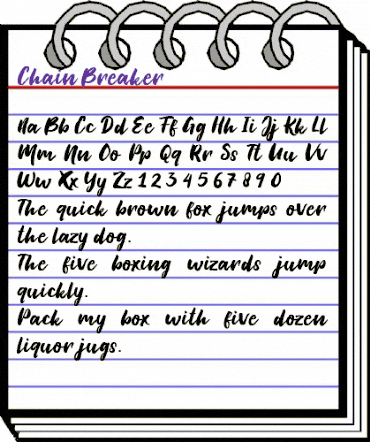 Chain Breaker
Aa Bb Cc Dd Ee Ff Gg Hh Ii Jj Kk Ll
Mm Nn Oo Pp Qq Rr Ss Tt Uu Vv
Ww Xx Yy Zz 1 2 3 4 5 6 7 8 9 0
The quick brown fox jumps over
the lazy dog.
The five boxing wizards jump
quickly.
Pack my box with five dozen
liquor jugs.